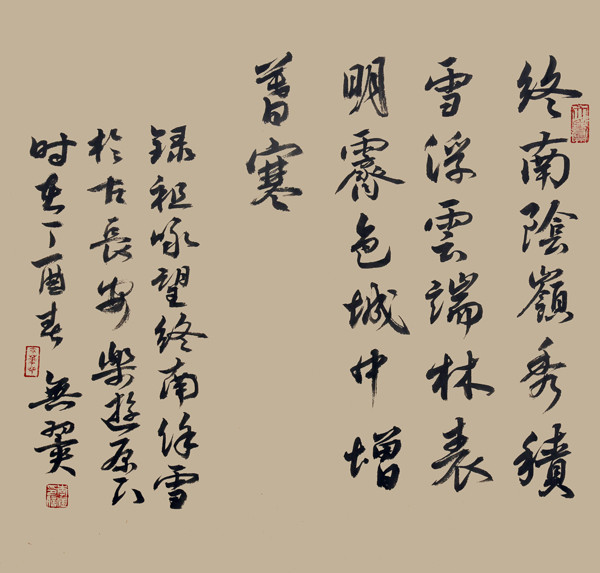 終南陰嶺秀積
雪浮雲端林表
明霽色城中增
暮寒
録祖咏望終南餘雪
於古長安樂遊原下
时在丁酉春 無翼